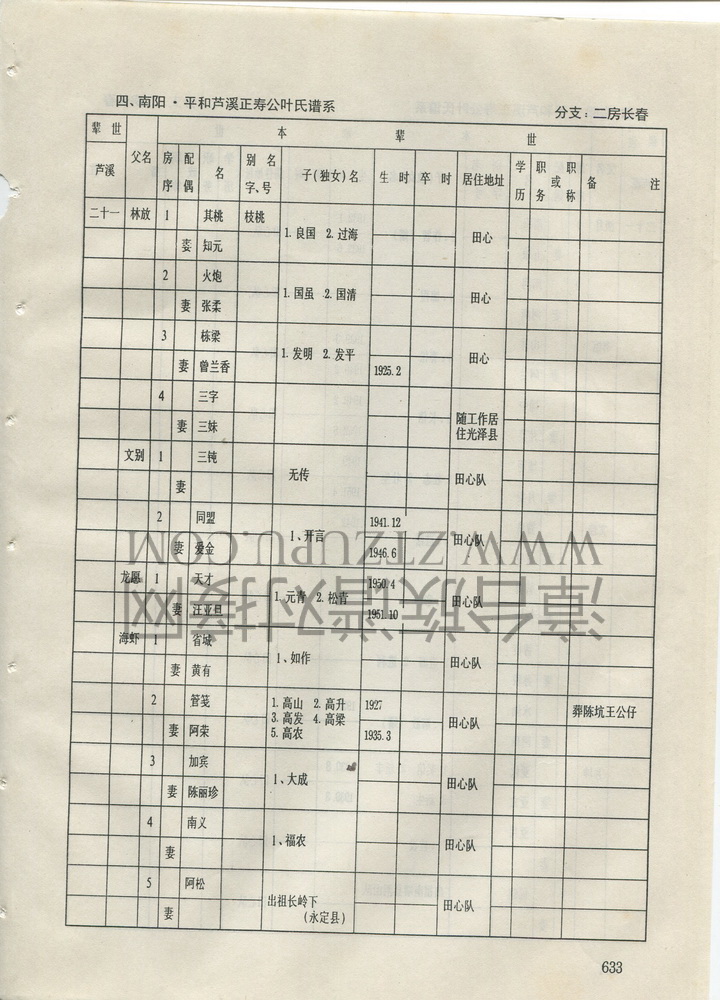 四、南阳·平和芦溪正寿公叶氏谱系 分支：二房长春
辈世 本辈世
芦溪 父名 房序 配偶 名 别名字、号 子(独女)名 生时 卒时 居住地址 学历 职务或职称 备注
二十一 林放 1 其桃 枝桃 1.良国 2.过海 田心
妻 知元
2 火炮 1.国虽 2.国清 田心
妻 张柔
3 栋梁 1.发明 2.发平 田心
妻 曾兰香 1925.2
4 三字 随工作居住光泽县
妻 三妹
文别 1 三钝 无传 田心队
妻
2 同盟 1、开言 1941.12 田心队
妻 爱金 1946.6
龙愿 1 天才 1.元青 2.松青 1950.4 田心队
妻 汪亚旦 1951.10
海虾 1 省城 1、如作 田心队
妻 黄有
2 管笺 1.高山 2.高升 3.高发 4.高梁 5.高农 1927 田心队 葬陈坑王公仔
妻 阿荣 1935.3
3 加宾 1、大成 田心队
妻 陈丽珍
4 南义 1、福农 田心队
妻
5 阿松 出祖长岭下(永定县) 田心队
妻
633
漳台族谱对接网
WWW.ZTZUPU.COM